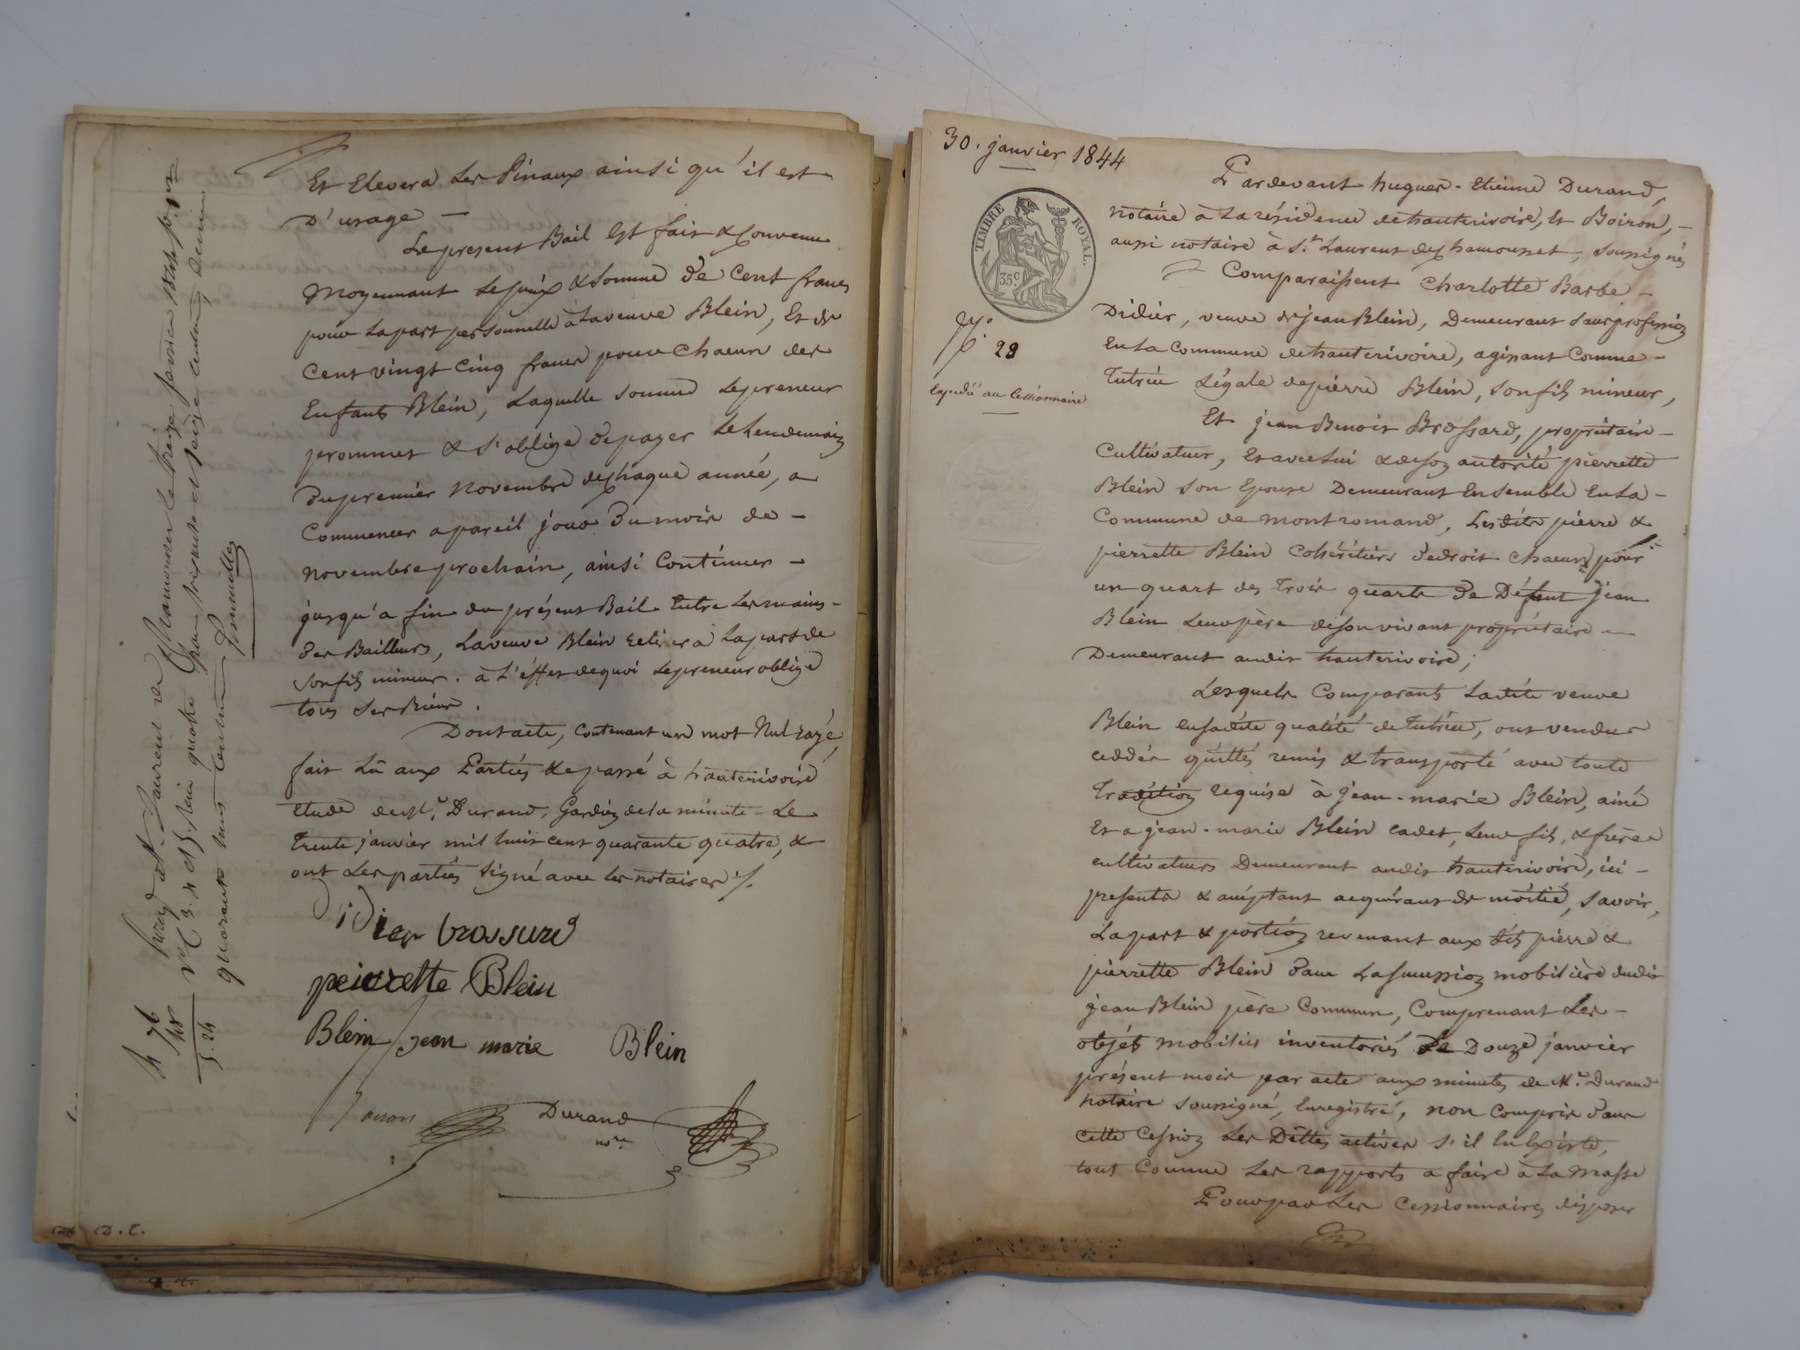 Et Elevera les Pinaux ainsi qu'il est
D'usage —
Le present Bail est fait & Convenu
Moyennant le prix & Somme de Cent francs
pour la part personnelle à la veuve Blein, Et de
Cent vingt Cinq francs pour Chacun des
Enfants Blein, Laquelle Somme le preneur
promet & s'oblige de payer le lendemain
du premier Novembre de chaque année, a
Commencer a pareil jour du mois de –
novembre prochain, ainsi Continuer –
jusqu'a fin du présent Bail Entre les mains
des Bailleurs, La veuve Blein retirera la part de
son fils mineur. à L'éffet de quoi le preneur oblige
tous ses Biens.
Dont acte, Contenant un mot Nul rayé,
fait Lû aux Parties & passé à hauterivoire
étude de M.e Durand, Gardien de la minute – Le
Trente janvier mil huit cent quarante quatre, &
ont les parties signé avec les notaires ./.
Didier brossard
peirrette Blein
Blein jean marie Blein
Durand
no.re
Enreg. à St. Laurent de Chamousset le treize fevrier 1844 fo.
quarante
D. C.
30. janvier 1844
TIMBRE ROYAL.
35 c.
28
Expédié au Cessionnaire
Pardevant hugues-Etienne Durand,
notaire à la résidence de hauterivoire, Et Boiron, –
aussi notaire à S.t Laurent de chamousset, soussignés
Comparaissent Charlotte Barbe –
Didier, veuve de jean Blein, Demeurant sans profession
En la Commune de hauterivoire, agissant Comme –
Tutrice Légale de pierre Blein, son fils mineur,
Et jean Benoit Brossard, propriétaire –
Cultivateur, Et avec lui & de son autorité pierrette
Blein son Epouse Demeurant Ensemble En la –
Commune de montromand, Lesdits pierre &
pierrette Blein Cohéritiers de droit chacun pour
un quart des Trois quarts de Défunt jean
Blein leur père de son vivant propriétaire –
Demeurant audit hauterivoire;
Lesquels Comparants Ladite veuve
Blein en sadite qualité de Tutrice, ont vendu
ceddés quittés remis & transporté avec toute
Tradition requise à jean-marie Blein, ainé
Et a jean-marie Blein cadet, leur fils, & frère
cultivateurs Demeurant audit hauterivoire, ici –
presents & acceptant acquéreurs de moitié, Savoir,
La part & portion revenant aux dits pierre &
pierrette Blein dans La Succession mobiliere dudit
jean Blein père Commun, Comprenant les –
objets mobiliers inventoriés le Douze janvier
présent mois par acte aux minutes de M.e Durand
notaire soussigné, Enregistré, non Compris dans
cette Cession les Dêttes actives s'il En Existe,
tout Comme les rapports a faire à La Masse
Pour par les Cessionnaires disposer